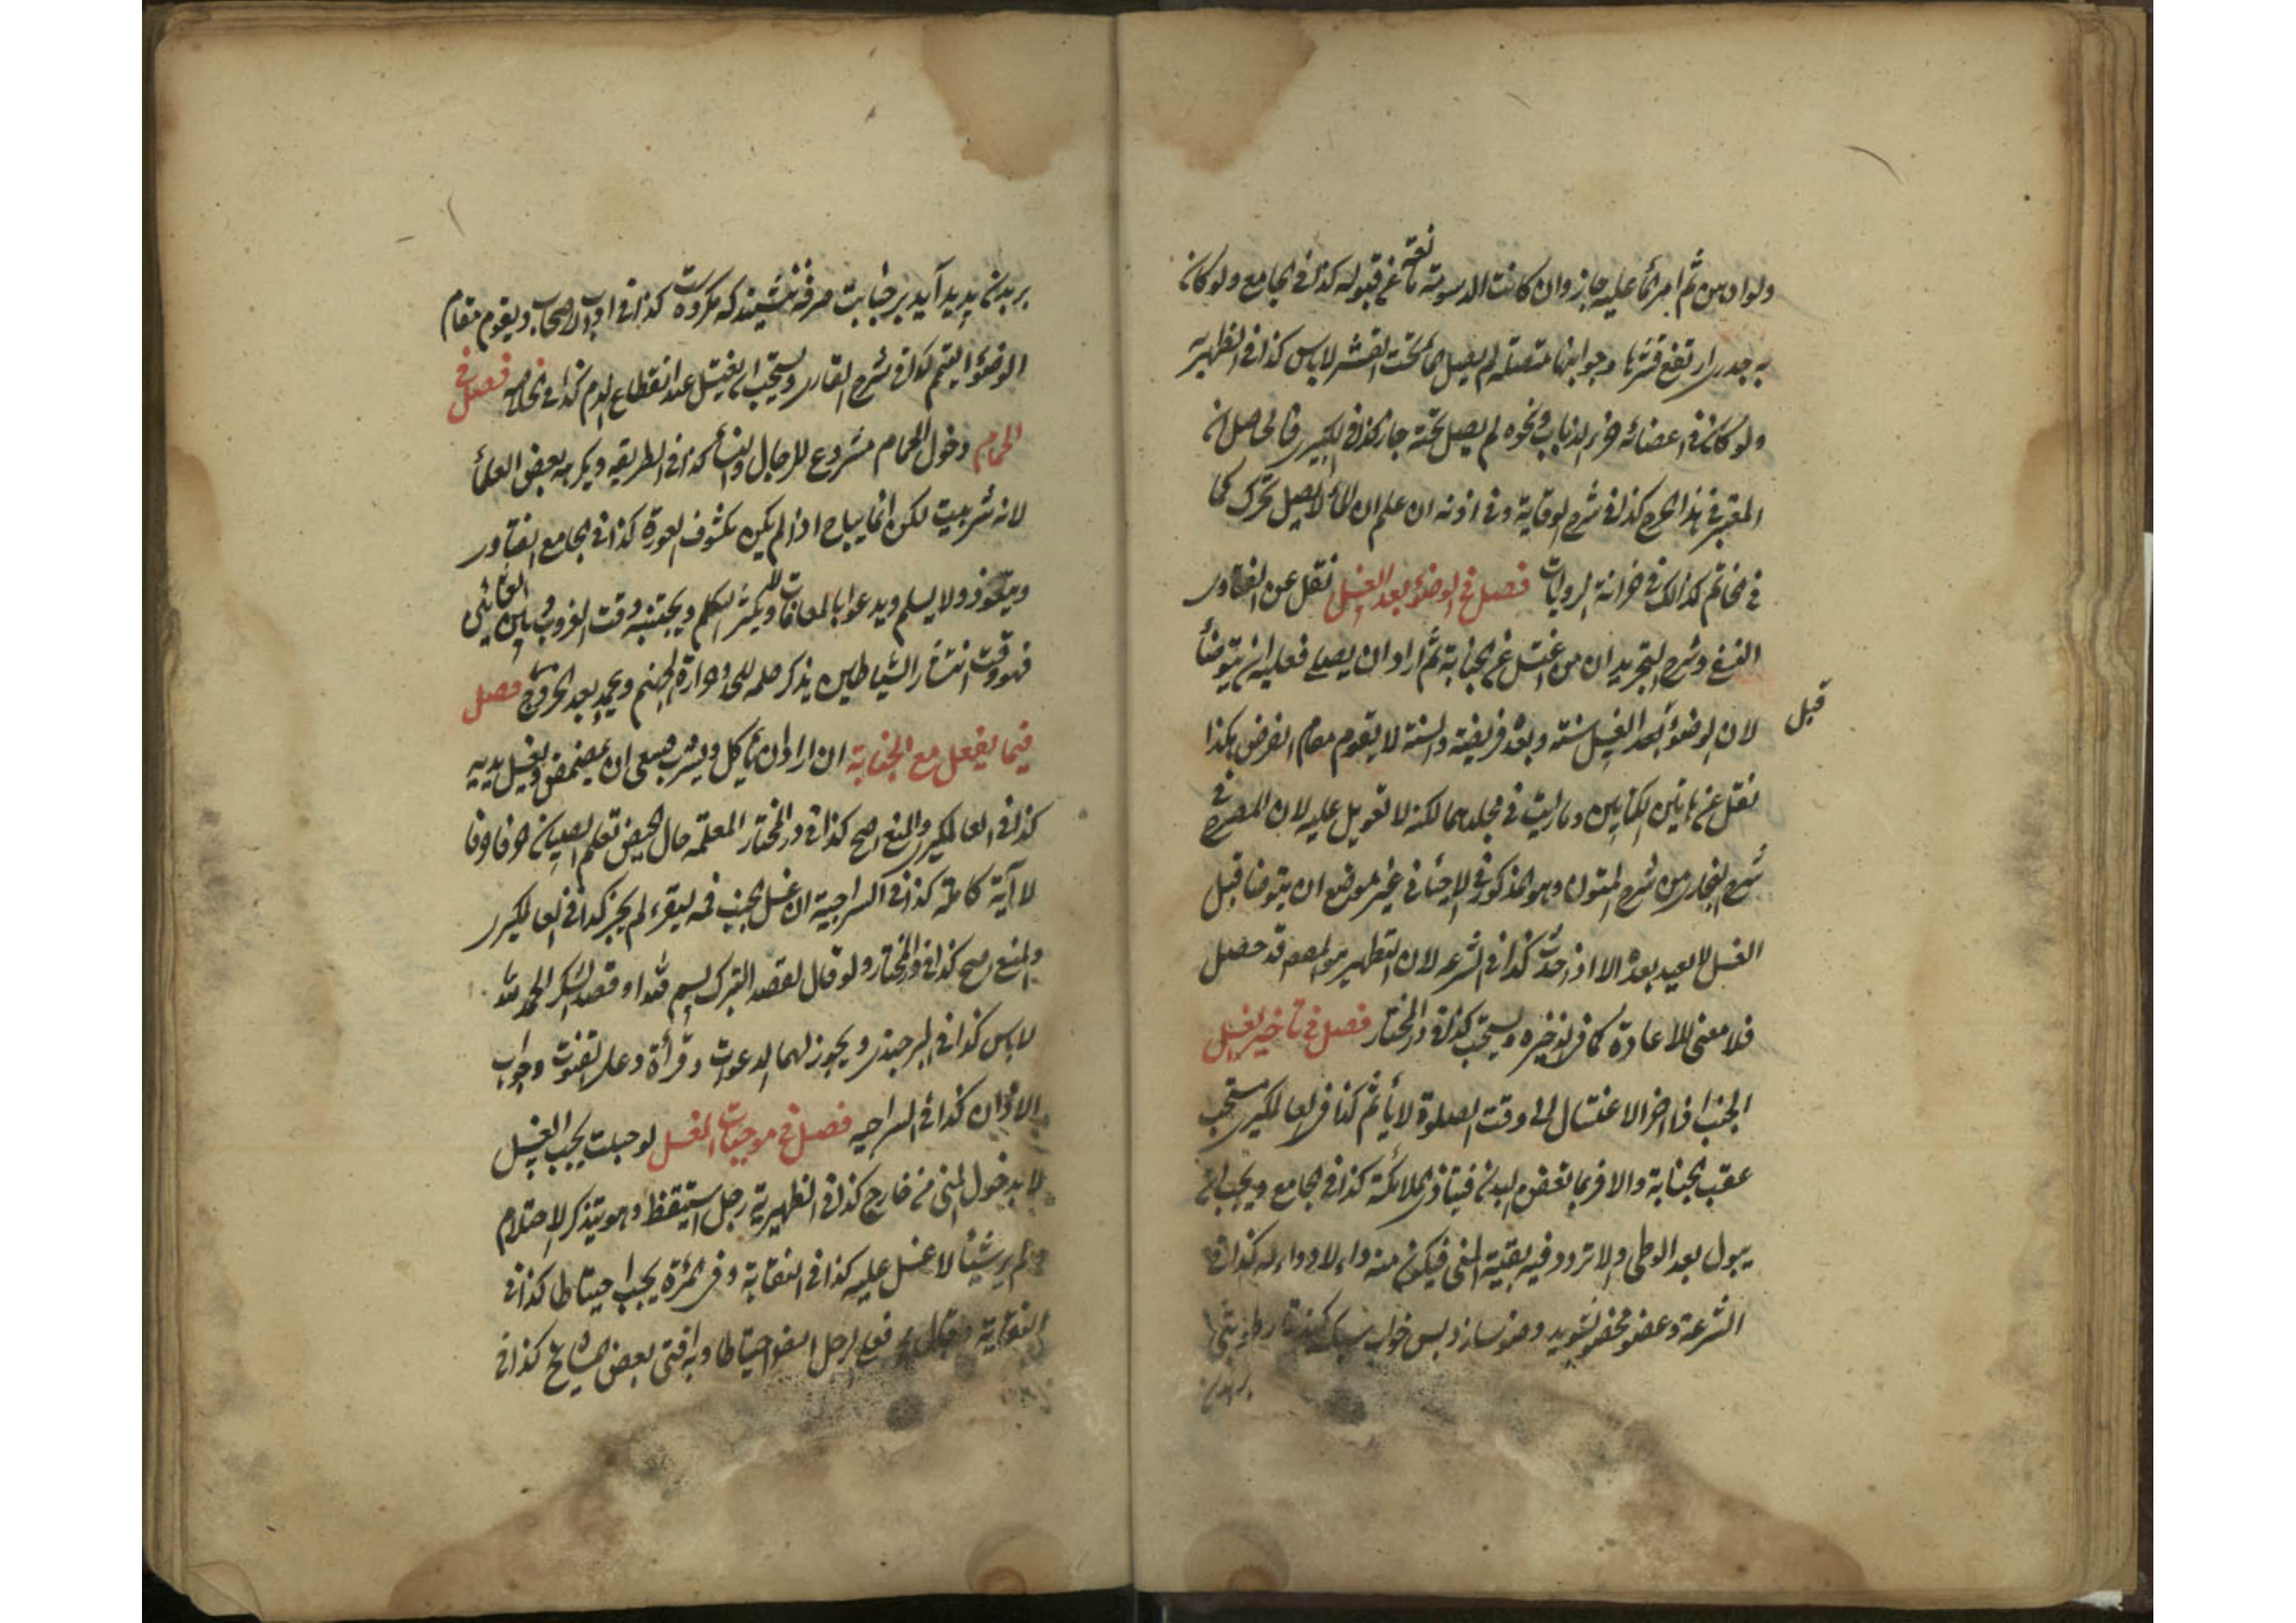 ولو ادهن ثم امر الماء عليه جاز وان كانت الدسومة مانعة عن قبوله كذا فى الجامع ولو كان
به جدرى ارتفع قشرها وجوانبها متصلة لم يصل الماء تحت القشر لا باس كذا فى الظهيرية
ولو كان فى اعضائه خرء الذباب ونحوه لم يصل تحته جاز كذا فى الكبيرى فالحاصل ان
المعتبر فى هذا الحرج كذا فى شرح الوقاية وفى اذنه ان علم ان الماء لا يصل تحرك كما
فى خاتم كذلك فى خزانة الروايات فصل فى الوضوء بعد الغسل نقل عن الفتاوى
النسفى وشرح التجريد ان من اغتسل عن الجنابة ثم اراد ان يصلى فعليه ان يتوضأ
قبل
لان الوضوء بعد الغسل سنة وبعده فريضة والسنة لا يقوم مقام الفرض هكذا
نقل عن هاتين الكتابين وما رايت فى مجلدهما لكنه لا تعويل عليه لان المصرح فى
شرح البخارى من شرح المتون وهو المذكور فى الاحيا فى غير موضع ان يتوضا قبل
الغسل لا يعيد بعده الا اذا احدث كذا فى الشرعه لان التطهير هو المقصود قد حصل
فلا معنى للاعادة كما فى الذخيره ويستحب كذا فى در المختار فصل فى تاخير الغسل
الجنب اذا اخر الاغتسال الى وقت الصلوة لا يأثم كذا فى العالمكيرى يستحب
عقب الجنابة والا فربما تغضوم البدن فيتاذى الملائكة كذا فى الجامع ويجب ان
يبول بعد الوطى والا تردد فيه بقية المنى فيكون منه داء لا دواء له كذا فى
الشرعة وعضو مخصوص بشويد وضو سازد پس خواب
بر بدن
بر بدن پديد آيد بر جنابت صرفه ننشيند كه مكروه است كذا فى اداب الاصحاب ويقوم مقام
الوضوء التيمم كذا فى شرح القارى ويستحب ان يغتسل عند انقطاع الدم كذا فى الخلاصه فصل فى
الحمام دخول الحمام مشروع للرجال والنساء كذا فى الطريقه ويكرهه بعض العلماء
لانه شر بيت لكن انما يباح اذا لم يكن مكشوف العورة كذا فى الجامع الفتاوى
ويتعوذ ولا يسلم ويدعوا بالمعافات ولا يكثر التكلم ويجتنبه وقت الغروب وبين العشائين
فهو وقت انتشار الشياطين يذكر ظلمه اللحد وحرارة جهنم ويحمد بعد الخروج فصل
فيما يفعل مع الجنابة ان اراد ان يأكل ويشرب ينبغى ان يمضمض ويغسل يديه
كذا فى العالمكيرى والمنع اصح كذا فى در المختار المعلمة حال الحيض تعلم الصبيان حرفا حرفا
لا آية كاملة كذا فى السراجية ان غسل الجنب فمه ليقرء لم يجز كذا فى العالمكيرى
والمنع اصح كذا فى در المختار ولو قال لقصد التبرك بسم الله او قصد الشكر الحمد لله
لا باس كذا فى البرجندى ويجوز لهما الدعوات وقرأة دعاء القنوت وجواب
الاذان كذا فى السراجيه فصل فى موجبات الغسل لو حبلت يجب الغسل
لا بدخول المنى من خارج كذا فى الظهيرية رجل استيقظ وهو يتذكر الاحتلام
ولم ير شيئا لا غسل عليه كذا فى النقاية وفى المرءة يجب احتياطا كذا فى
النقاية فعلى الرجل ايضا احتياطا وبه افتى بعض المشايخ كذا فى